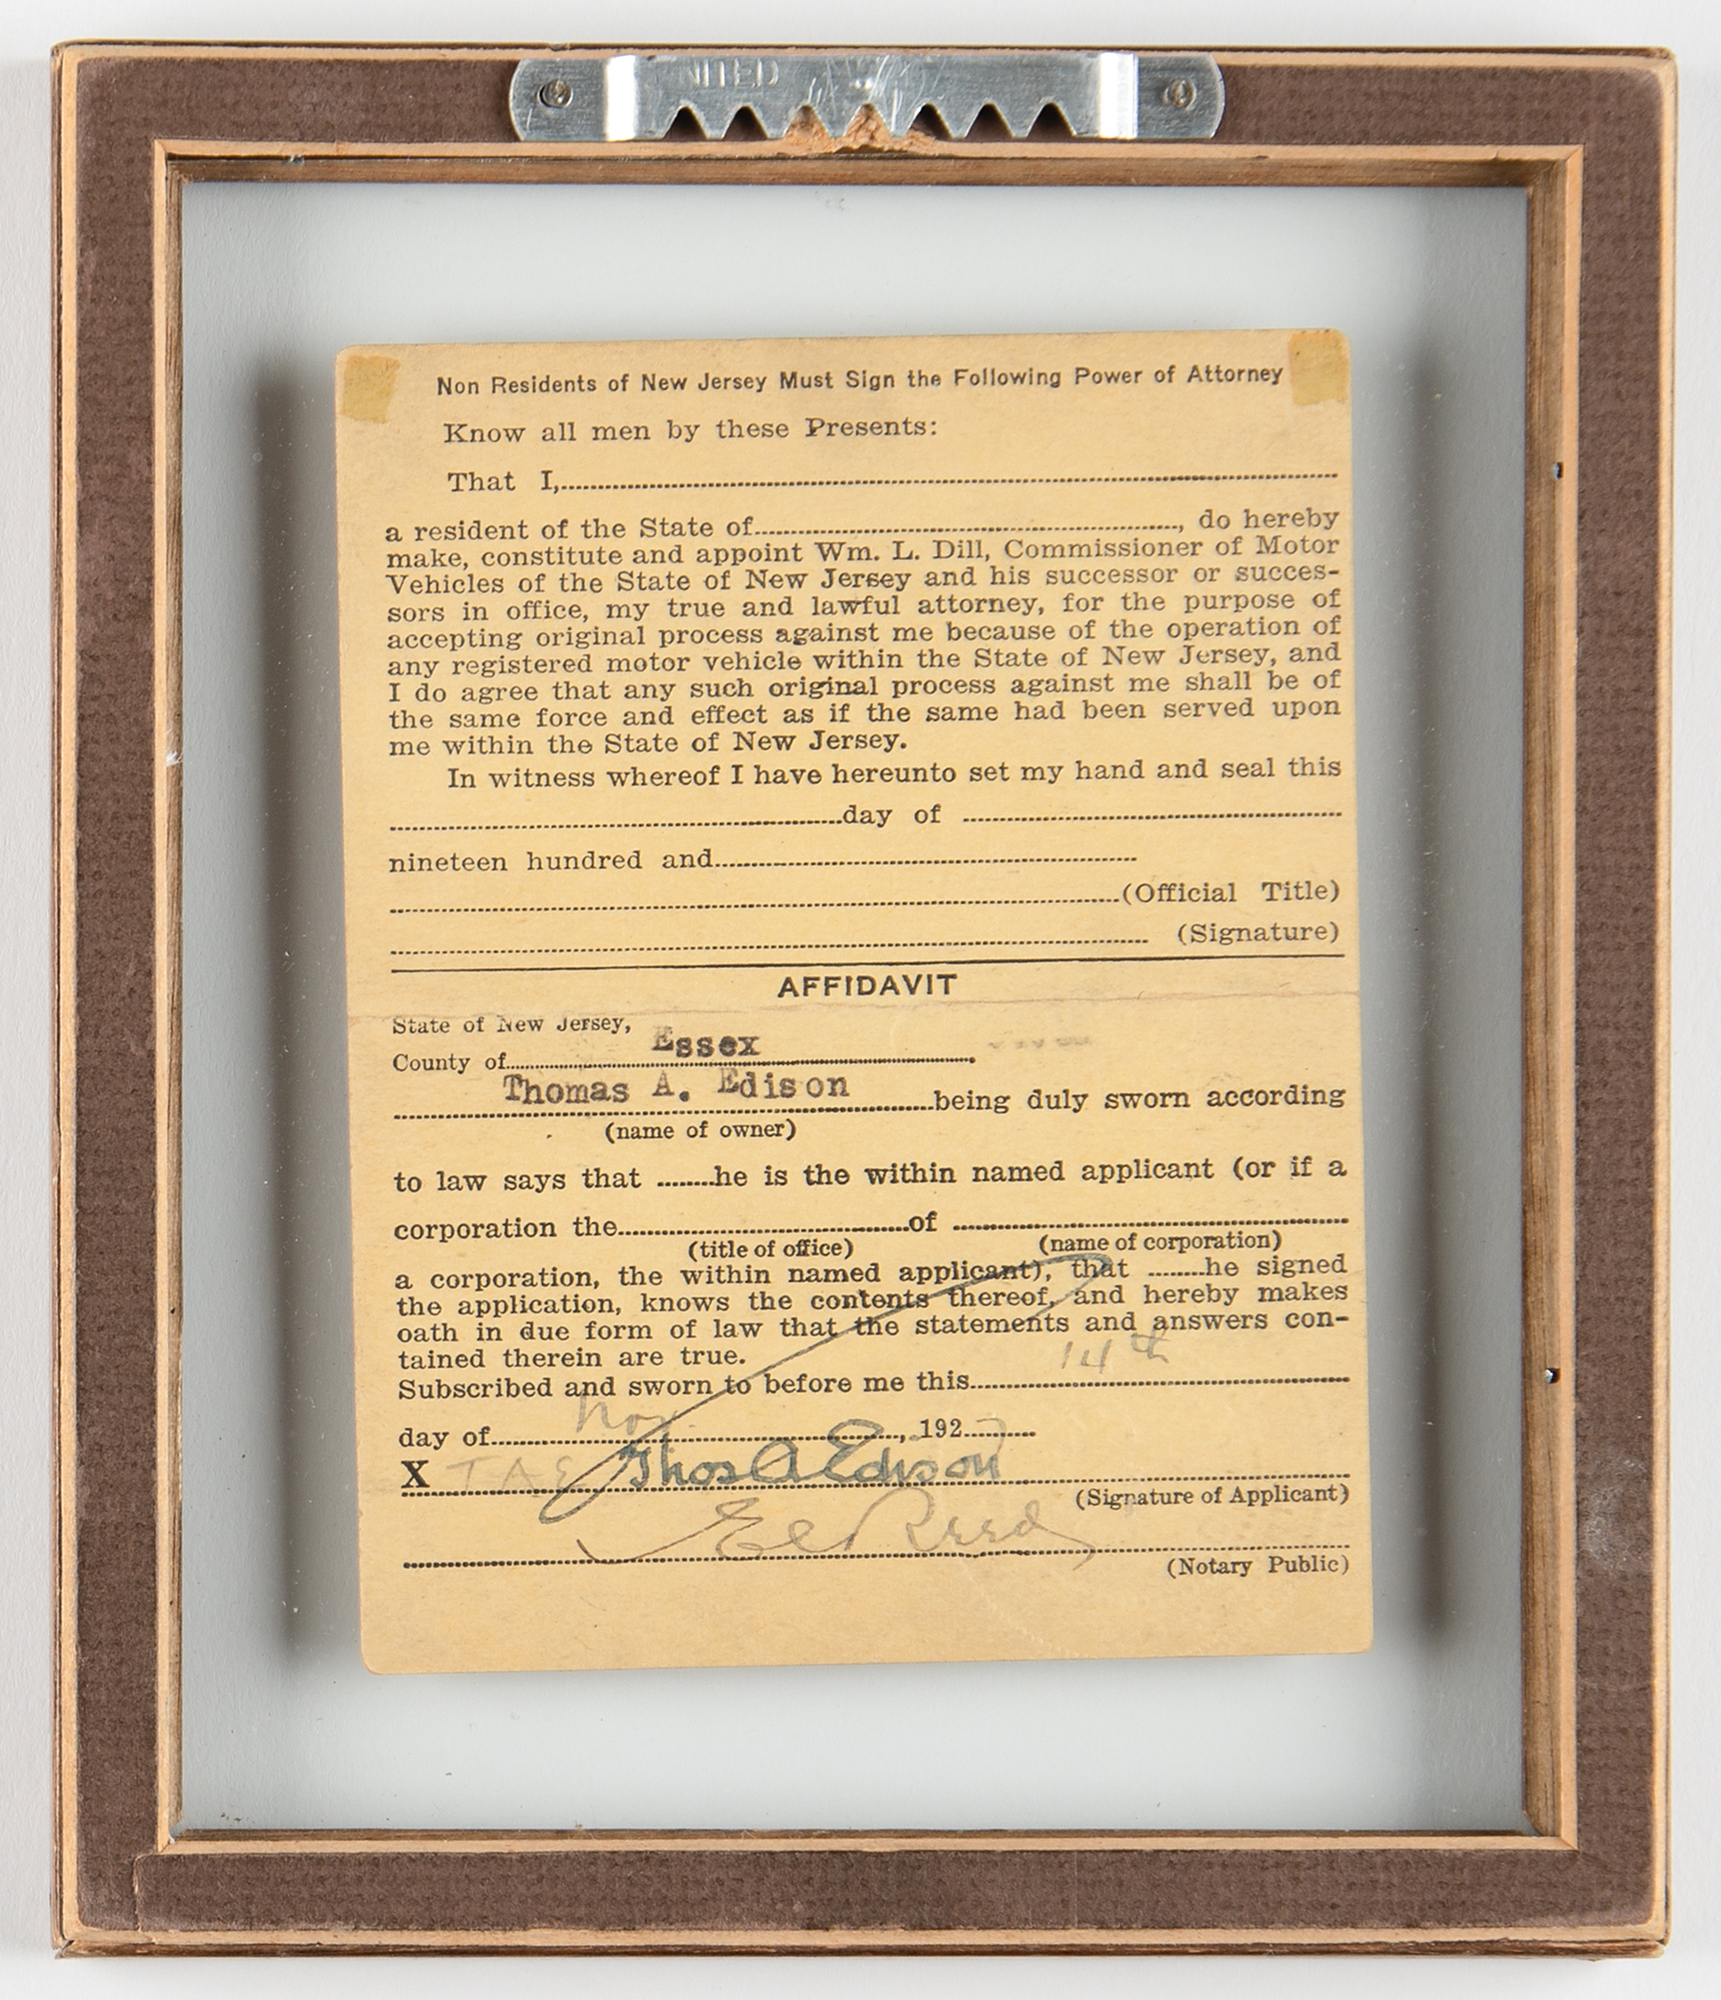 NITED
Non Residents of New Jersey Must Sign the Following Power of Attorney
Know all men by these Presents:
That I,
a resident of the State of , do hereby
make, constitute and appoint Wm. L. Dill, Commissioner of Motor
Vehicles of the State of New Jersey and his successor or succes-
sors in office, my true and lawful attorney, for the purpose of
accepting original process against me because of the operation of
any registered motor vehicle within the State of New Jersey, and
I do agree that any such original process against me shall be of
the same force and effect as if the same had been served upon
me within the State of New Jersey.
In witness whereof I have hereunto set my hand and seal this
day of
nineteen hundred and
(Official Title)
(Signature)
AFFIDAVIT
State of New Jersey,
County of Essex
Thomas A. Edison being duly sworn according
(name of owner)
to law says that he is the within named applicant (or if a
corporation the of
(title of office) (name of corporation)
a corporation, the within named applicant), that he signed
the application, knows the contents thereof, and hereby makes
oath in due form of law that the statements and answers con-
tained therein are true.
Subscribed and sworn to before me this 14th
day of Nov. , 1927
X TAE Thos A Edison
(Signature of Applicant)
Reed
(Notary Public)